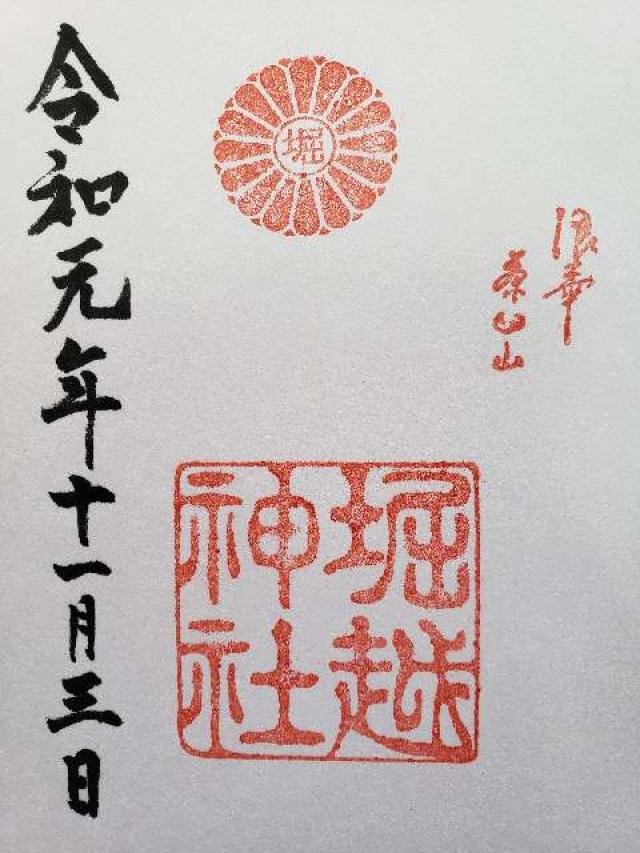 浪華
茶臼山
堀
堀越
神社
令和元年十一月三日